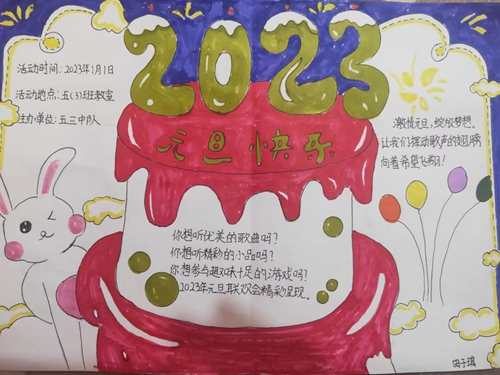 2023
元旦快乐
活动时间:2023年1月1日
活动地点:五(3)班教室
主办单位:五三中队
激情元旦,绽放梦想。
让我们挥动歌声的翅膀
向着希望飞翔!
你想听优美的歌曲吗?
你想听精彩的小品吗?
你想参与趣味十足的游戏吗?
2023年元旦联欢会精彩呈现。